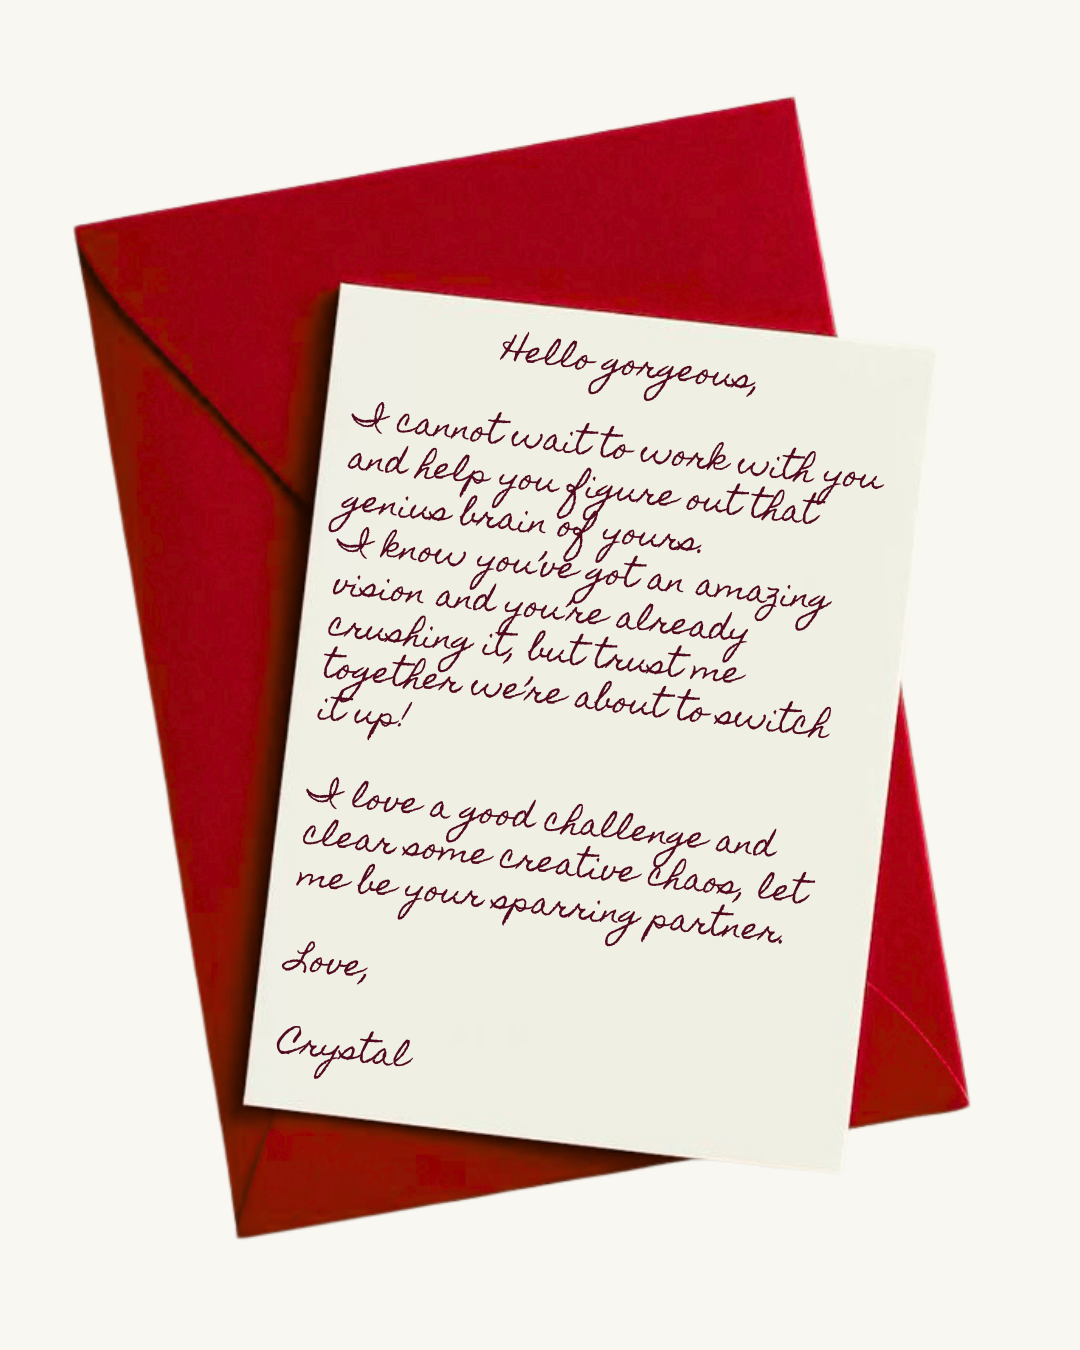 Hello gorgeous,
I cannot wait to work with you
and help you figure out that
genius brain of yours.
I know you've got an amazing
vision and you're already
crushing it, but trust me
together we're about to switch
it up!
I love a good challenge and
clear some creative chaos, let
me be your sparring partner.
Love,
Crystal